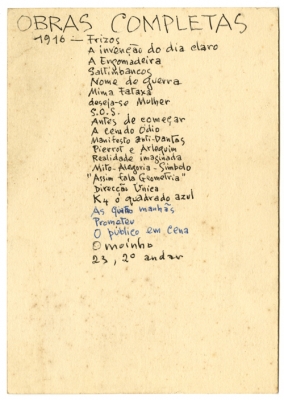 OBRAS COMPLETAS
1916 — Frizos
A invenção do dia claro
A Engomadeira
Saltimbancos
Nome de guerra
Mima Fataxa
deseja-se Mulher
S.O.S.
Antes de começar
A cena do Ódio
Manifesto anti-Dantas
Pierrot e Arlequim
Realidade imaginada
Mito-Alegoria-Símbolo
"Assim fala Geometria"
Direcção Unica
K4 o quadrado azul
As quatro manhãs
Prometeu
O público em cena
O moinho
23, 2º andar